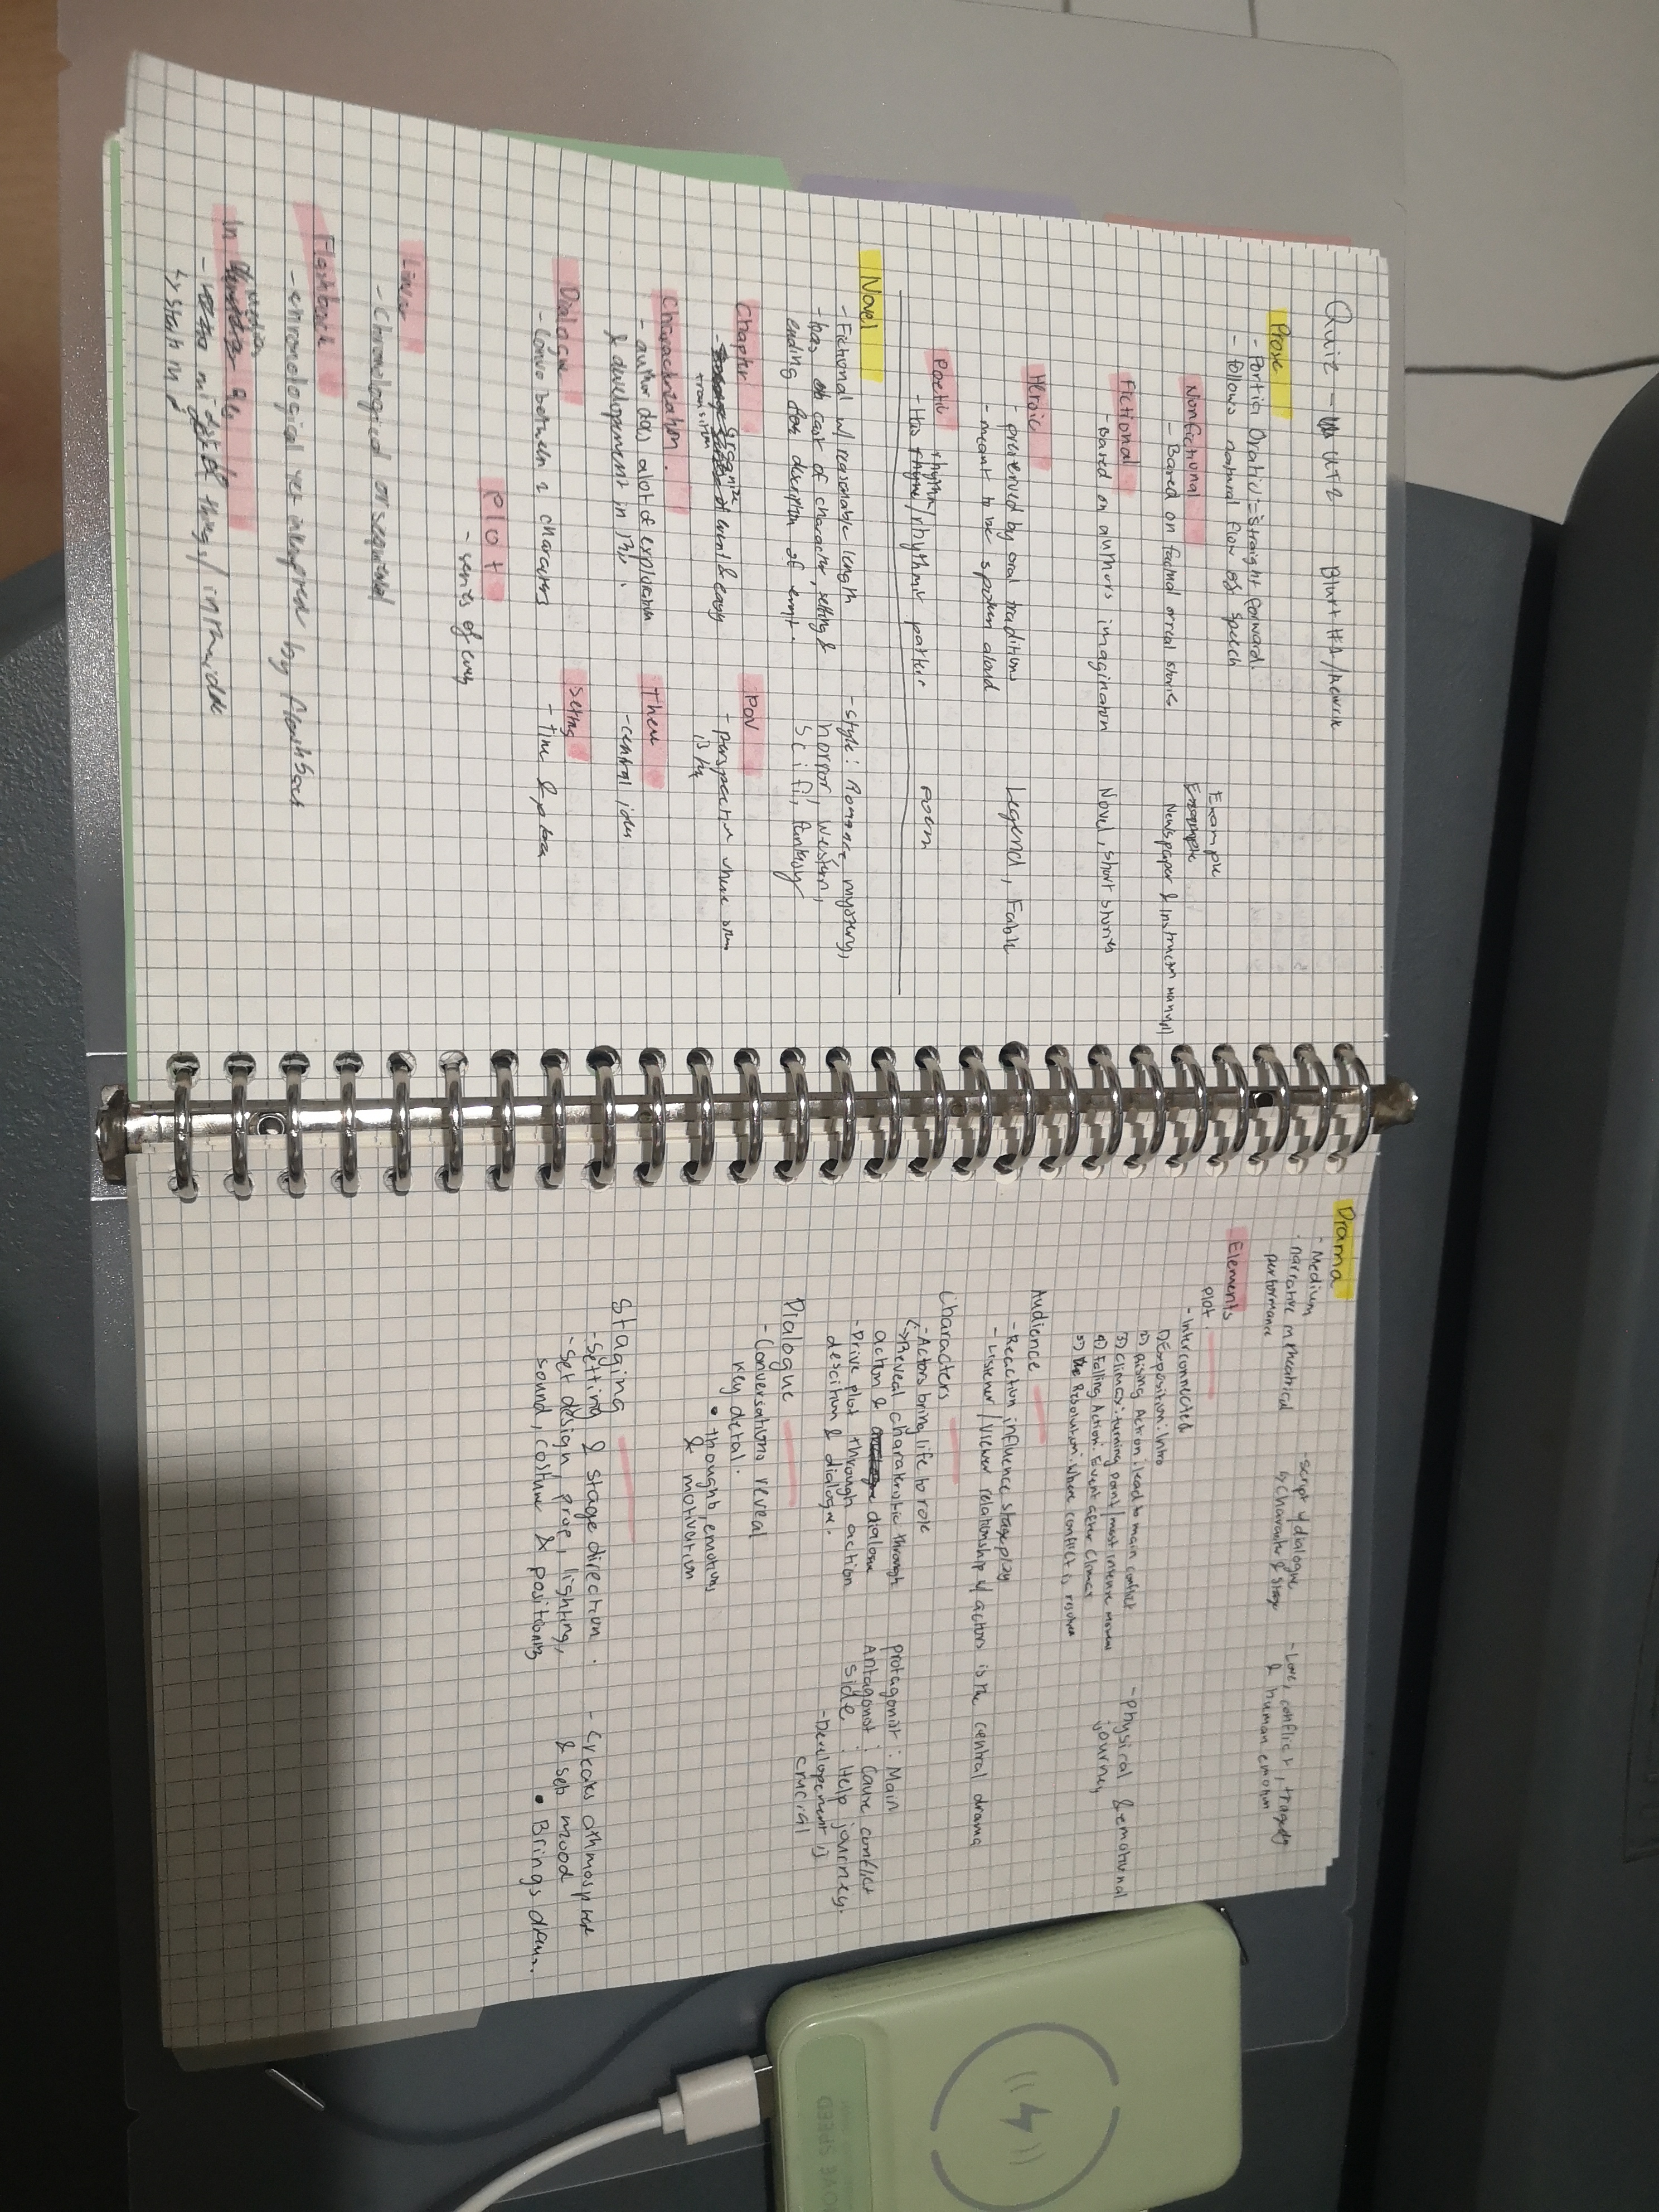 Quiz - UTS Blurt #1 /
Prose
- Portio Oratio = Straight forward.
- Follows natural flow of speech
Example
Nonfictional
- Based on factual or real stories
Newspaper & instruction manual
Fictional
- Based on authors imagination
Novel, short stories
Heroic
- preserved by oral traditions
- meant to be spoken aloud
Legend, Fable
Poetic
- Has rhythm / rhythmic pattern
poem
Novel
- Fictional w/ reasonable length
- has cast of character, setting &
ending description of
- style: Romance, mystery,
horror, western,
Sci fi, fantasy
Chapter
- organize event & easy
transition
POV
- perspective where
is by
Characterization.
- author does alot of explanation
& development in
Theme
- central idea
Dialogue
- Convo between 2 characters
Setting
- Time & place
Plot
- series of
Linear
- Chronological or sequential
Flashback
- chronological yet by flashback
In
- midst of things / in the
↳ start in
Drama
- Medium
- narrative in theatrical
performance
- script w/ dialogue
by character & stage
- Love, conflict, tragedy
& human emotion
Elements
plot.
- Interconnected
1) Exposition: Intro
2) Rising Action: lead to main conflict
3) Climax: turning point / most intense moment
4) Falling Action: Event after Climax
5) Resolution: Where conflict is resolved
- physical & emotional
journey
Audience
- Reaction influence stage play
- Listener / Viewer relationship w/ actors is the central drama
Characters
- Actors bring life to role
↳ Reveal characteristic through
action & dialogue
- Drive plot through action
descition & dialogue.
protagonist: Main
Antagonist: Cause conflict
Side: Help journey.
- Development is
crucial
Dialogue
- Conversations reveal
key detail.
• thoughts, emotions
& motivation
Staging
- Setting & stage direction.
- Set design, prop, lighting,
sound, costume & positioning
- Creates athmosphere
& sets mood
• Brings drama.